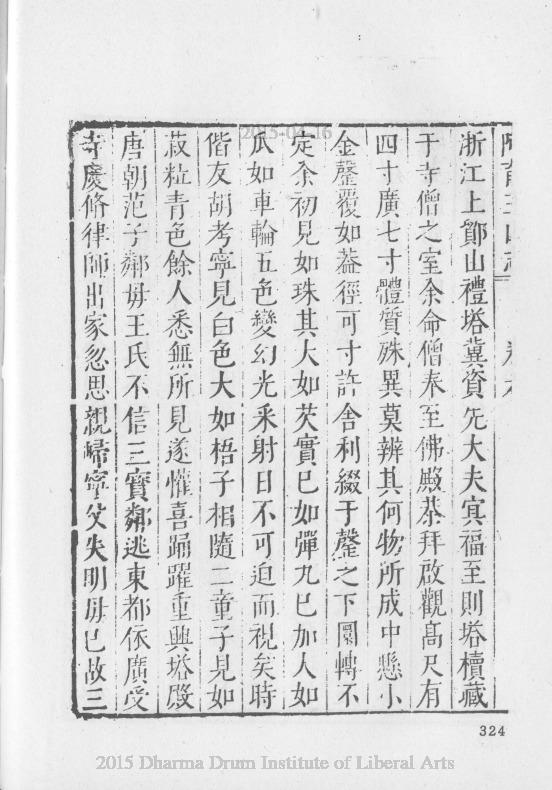 2015-04-16
浙江上鄮山禮塔冀資先大夫冥福至則塔櫝藏
于寺僧之室余命僧奉至佛殿恭拜啟觀高尺有
四寸廣七寸體質殊異莫辨其何物所成中懸小
金罄覆如葢徑可寸許舍利綴于罄之下圜轉不
定余初見如珠其大如芡實巳如彈丸巳加人如
瓜如車輪五色變幻光采射日不可迫而視矣時
偕友胡考寧見白色大如梧子相隨二童子見如
菽粒青色餘人悉無所見遂懽喜踊躍重興塔殿
唐朝范子鄰毋王氏不信三寶鄰逃東都依廣受
寺慶脩律師出家忽思親歸寧父失明毋巳故三
324
2015 Dharma Drum Institute of Liberal Arts